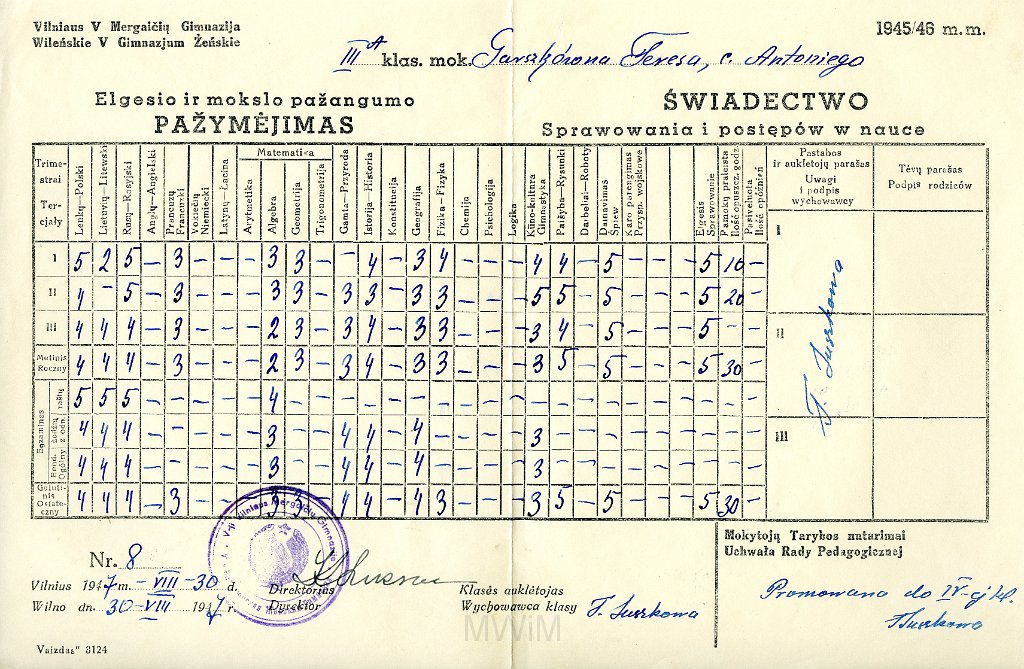 Vilniaus V Mergaičių Gimnazija
Wileńskie V Gimnazjum Żeńskie
1945/46 m.m.
III A klas. mok. Garszkówna Teresa, c. Antoniego
Elgesio ir mokslo pažangumo
PAŽYMĖJIMAS
ŚWIADECTWO
Sprawowania i postępów w nauce
Trimestrai
Tercjały
Lenkų—Polski
Lietuvių—Litewski
Rusų—Rosyjski
Anglų—Angielski
Prancūzų Francuski
Vokiečių Niemiecki
Lotynų—Łacina
Matematika
Arytmetika
Algebra
Geometrija
Trigonometrija
Gamta—Przyroda
Istorija—Historia
Konstitucija
Geografija
Fizika—Fizyka
Chemija
Psichologija
Logika
Kūno-kultura Gimnastyka
Paišyba—Rysunki
Darbeliai—Roboty
Dainavimas Śpiew
Karo parengimas Przysp. wojskowe
Elgesis Sprawowanie
Pamokų praleista Ilość opuszcz. godz.
Pasivėluota Ilość opóźnień
Pastabos ir auklėtojų parašas
Uwagi i podpis wychowawcy
Tėvų parašas
Podpis rodziców
I 5 2 5 — 3 — — — — 3 3 — — 4 — 3 4 — — — 4 4 — 5 — 5 10 —
II 4 — 5 — 3 — — — — 3 3 — 3 3 — 3 3 — — — 5 5 — 5 — 5 20 —
III 4 4 4 — 3 — — — — 2 3 — 3 4 — 3 3 — — — 3 4 — 5 — 5 — —
Metinis Roczny 4 4 4 — 3 — — — — 2 3 — 3 4 — 3 3 — — — 3 5 — 5 — 5 30 —
Egzaminas
raštu 5 5 5 — — — — — — 4 — —
žodžių z odp. 4 4 4 — — — — — — 3 — — 4 4 — 4 — — — — 3 — —
Bend. Ogólny 4 4 4 — — — — — — 3 — — 4 4 — 4 — — — — 3 — —
Galutinis Ostateczny 4 4 4 — 3 — — — — 3 3 — 4 4 — 4 3 — — — 3 5 — 5 — 5 30 —
I
II
III
T. Suszkowa
Nr. 8
Vilnius 1947 m. - VIII - 30 d.
Wilno dn. 30 - VIII 1947 r.
Direktorius
Dyrektor
Klasės auklėtojas
Wychowawca klasy T. Suszkowa
Mokytojų Tarybos nutarimai
Uchwała Rady Pedagogicznej
Promowana do IV-ej kl.
TSuszkowa
MWiM
Vaizdas" 3124